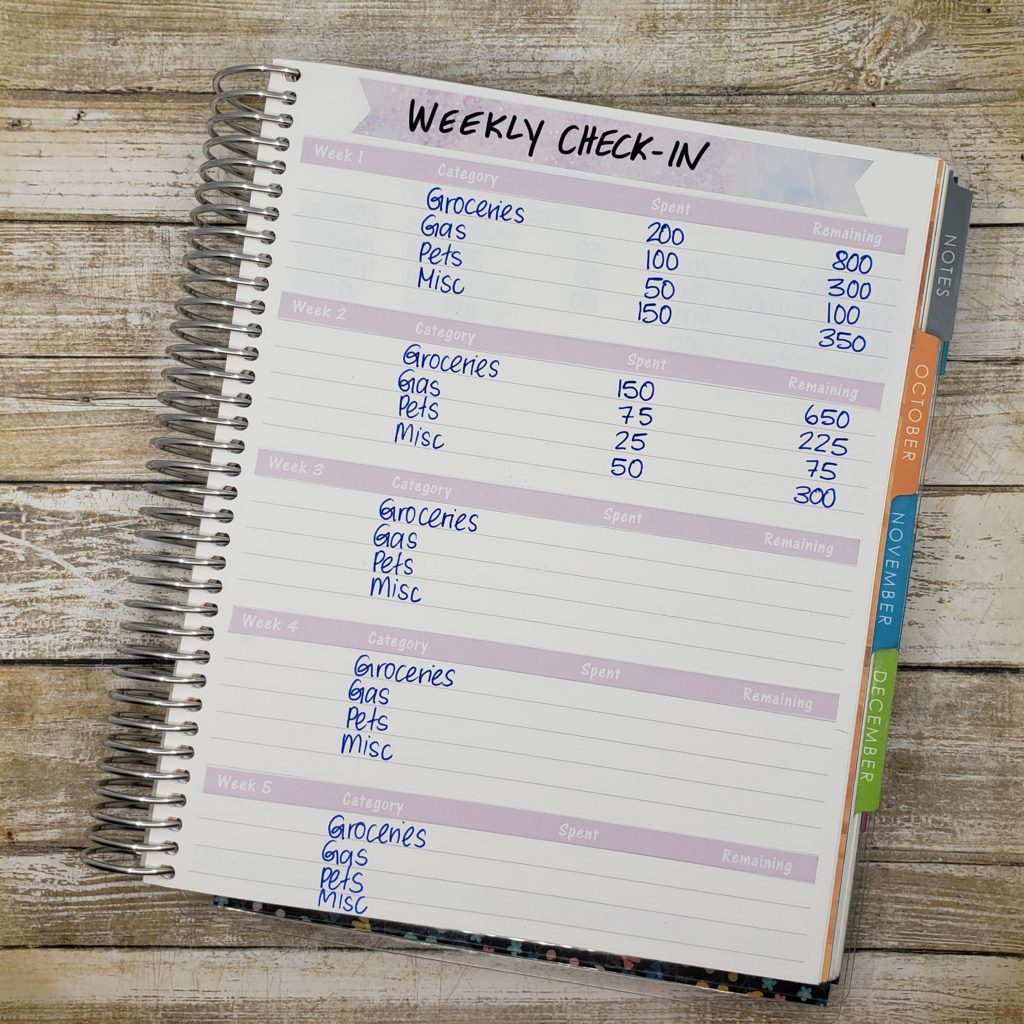 WEEKLY CHECK-IN
Week 1 Category Spent Remaining
Groceries 200 800
Gas 100 300
Pets 50 100
Misc 150 350
Week 2 Category Spent Remaining
Groceries 150 650
Gas 75 225
Pets 25 75
Misc 50 300
Week 3 Category Spent Remaining
Groceries
Gas
Pets
Misc
Week 4 Category Spent Remaining
Groceries
Gas
Pets
Misc
Week 5 Category Spent Remaining
Groceries
Gas
Pets
Misc
NOTES
OCTOBER
NOVEMBER
DECEMBER